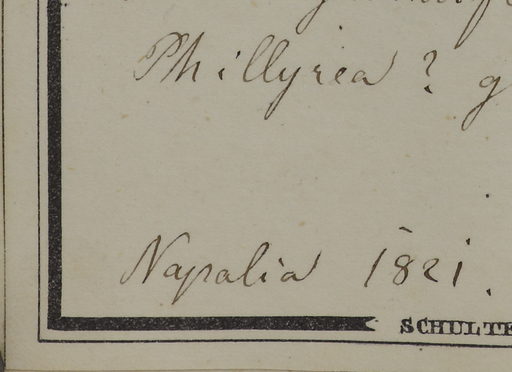 Phillyrea ? g
Napalia 1821.
SCHULTE